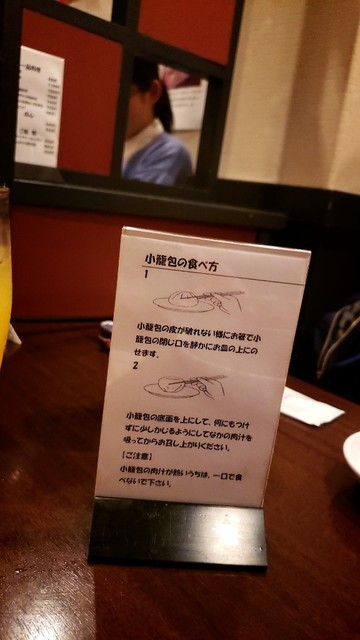 一品料理
点心
小籠包の食べ方
1
小籠包の皮が破れない様にお箸で小
籠包の閉じ口を静かにお皿の上にの
せます。
2
小籠包の底面を上にして、何にもつけ
ずに少しかじるようにしてなかの肉汁を
吸ってからお召し上がりください。
【ご注意】
小籠包の肉汁が熱いうちは、一口で食
べないで下さい。